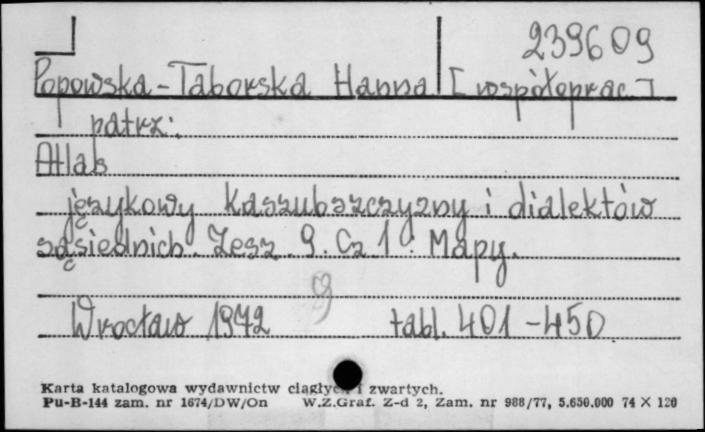 239609
Popowska-Taborska Hanna [współoprac.]
patrz:
Atlas
językowy kaszubszczyzny i dialektów
sąsiednich. Zesz. 9. Cz 1: Mapy.
Wrocław 1972 tabl. 401-450
Karta katalogowa wydawnictw ciągłych i zwartych.
Pu-B-144 zam. nr 1674/DW/On W.Z.Graf. Z-d 2, Zam. nr 988/77, 5.650.000 74 X 120